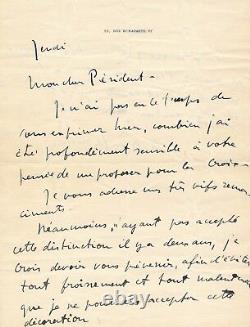 Jeudi
Mon cher Président -
Je n'ai pas eu le temps de
vous exprimer hier, combien j'ai
été profondément sensible à votre
pensée de me proposer pour la Croix -
Je vous adresse mes très vifs remer
ciements.
Néanmoins, ayant pas accepté
cette distinction il y a deux ans, je
crois devoir vous prévenir, afin d'éviter
tout froissement et tout malentendu
que je ne pourrais accepter cette
décoration